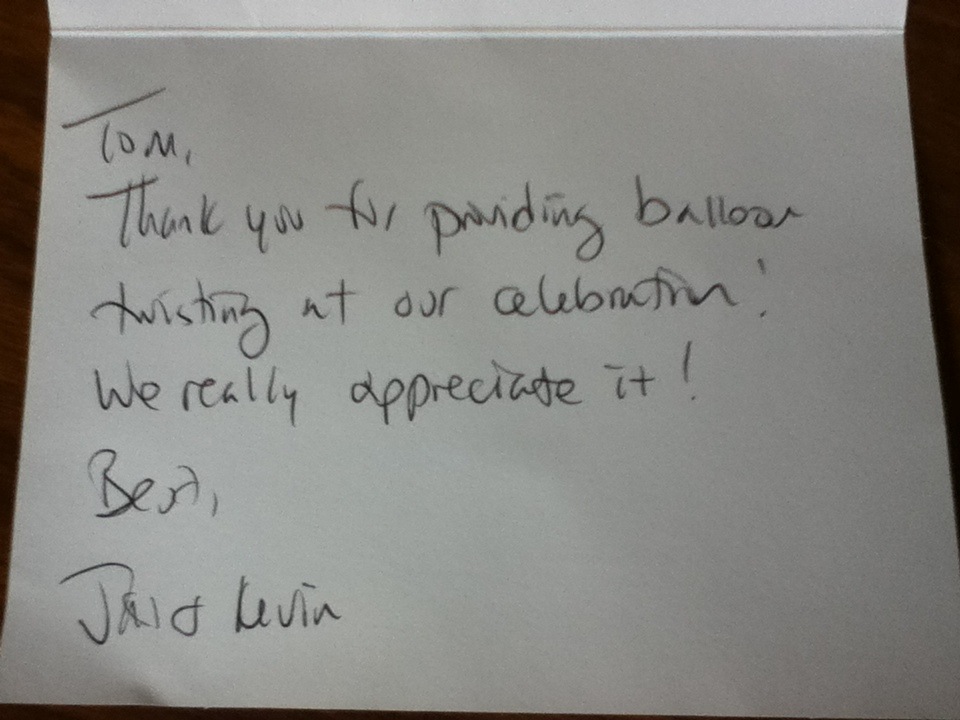 Tom,
Thank you for providing balloon
twisting at our celebration!
We really appreciate it!
Best,
Kevin